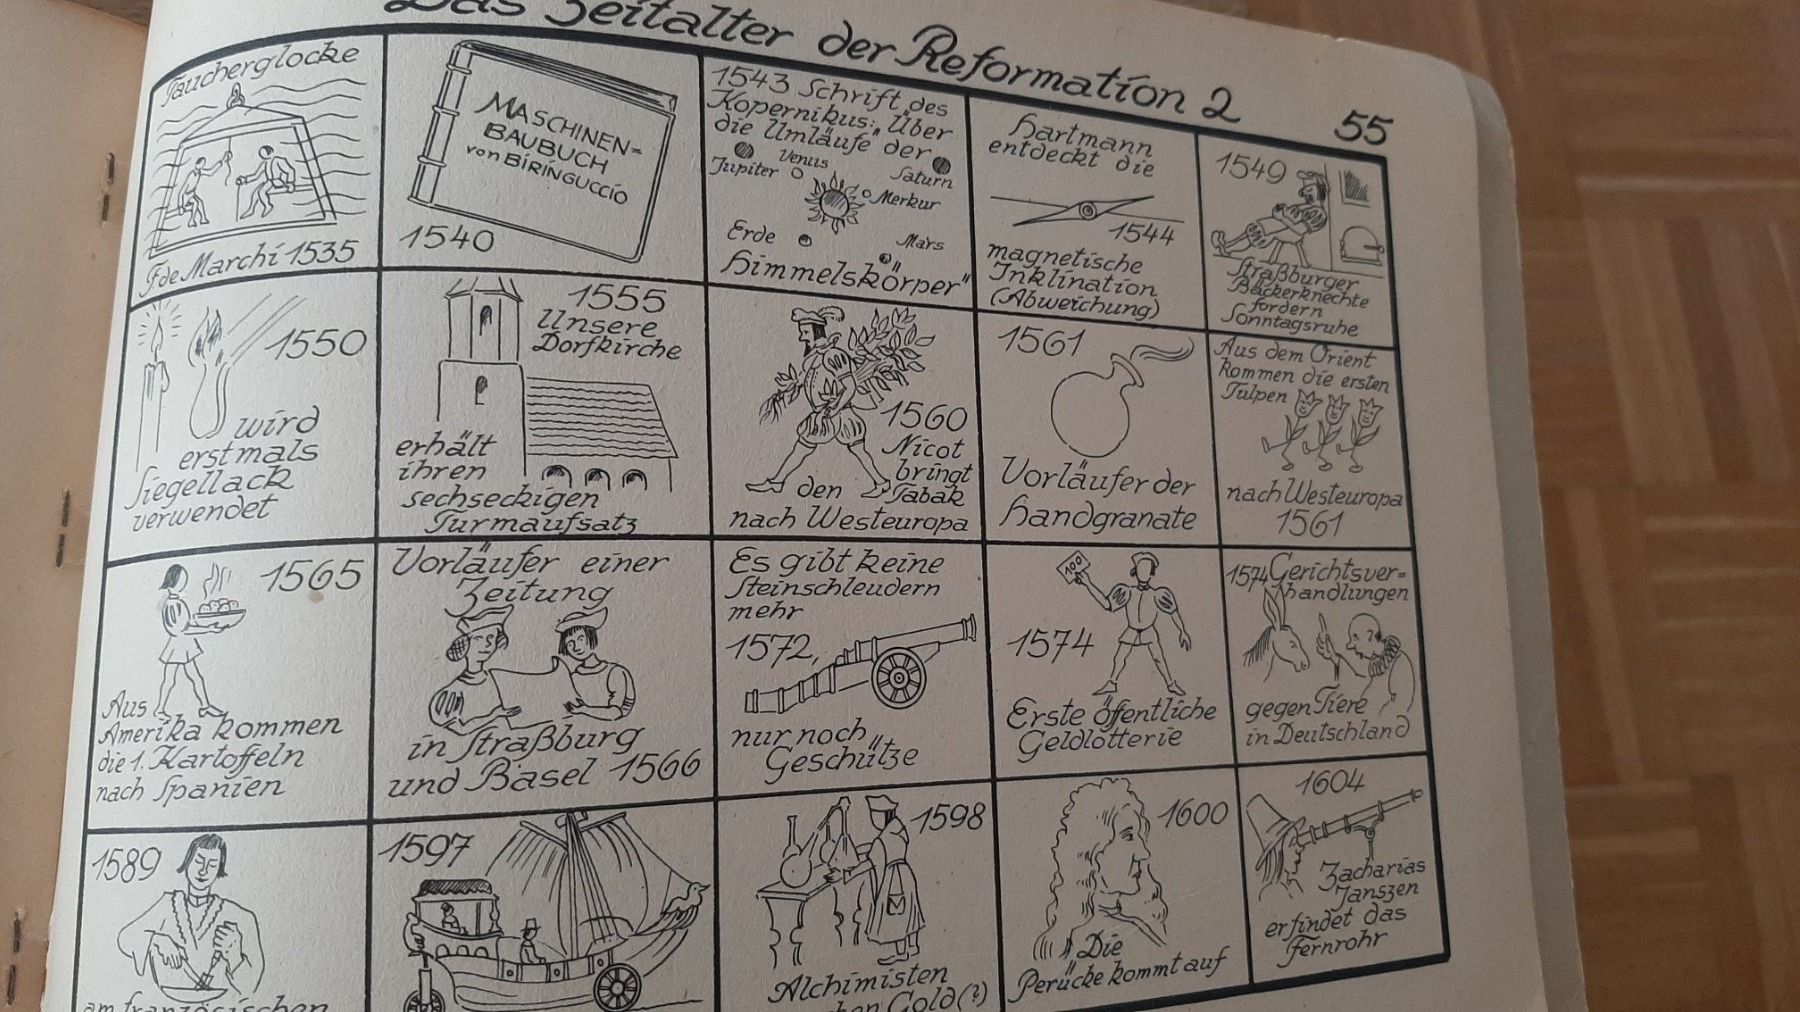 Das Zeitalter der Reformation 2
55
Taucherglocke
F de Marchi 1535
MASCHINEN=
BAUBUCH
von BIRINGUCCIO
1540
1543 Schrift des
Kopernikus: „Über
die Umläufe der
Jupiter
Venus
Saturn
Merkur
Erde
Mars
Himmelskörper"
Hartmann
entdeckt die
1544
magnetische
Inklination
(Abweichung)
1549
Straßburger
Bäckerknechte
fordern
Sonntagsruhe
1550
wird
erstmals
Siegellack
verwendet
1555
Unsere
Dorfkirche
erhält
ihren
sechseckigen
Turmaufsatz
1560
Nicot
bringt
den Tabak
nach Westeuropa
1561
Vorläufer der
Handgranate
Aus dem Orient
kommen die ersten
Tulpen
nach Westeuropa
1561
1565
Aus
Amerika kommen
die 1. Kartoffeln
nach Spanien
Vorläufer einer
Zeitung
in Straßburg
und Basel 1566
Es gibt keine
Steinschleudern
mehr
1572,
nur noch
Geschütze
100
1574
Erste öffentliche
Geldlotterie
1574 Gerichtsver=
handlungen
gegen Tiere
in Deutschland
1589
am französischen
1597
1598
Alchimisten
Gold (?)
1600
Die
Perücke kommt auf
1604
Zacharias
Janszen
erfindet das
Fernrohr